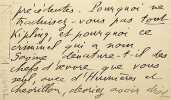 précédentes. Pourquoi ne
traduisez-vous pas tout
Kipling, et pourquoi ce
criminel qui a nom
dénature-t-il des
chefs d'œuvre que vous
seul, avec d'Humières et
devriez avoir